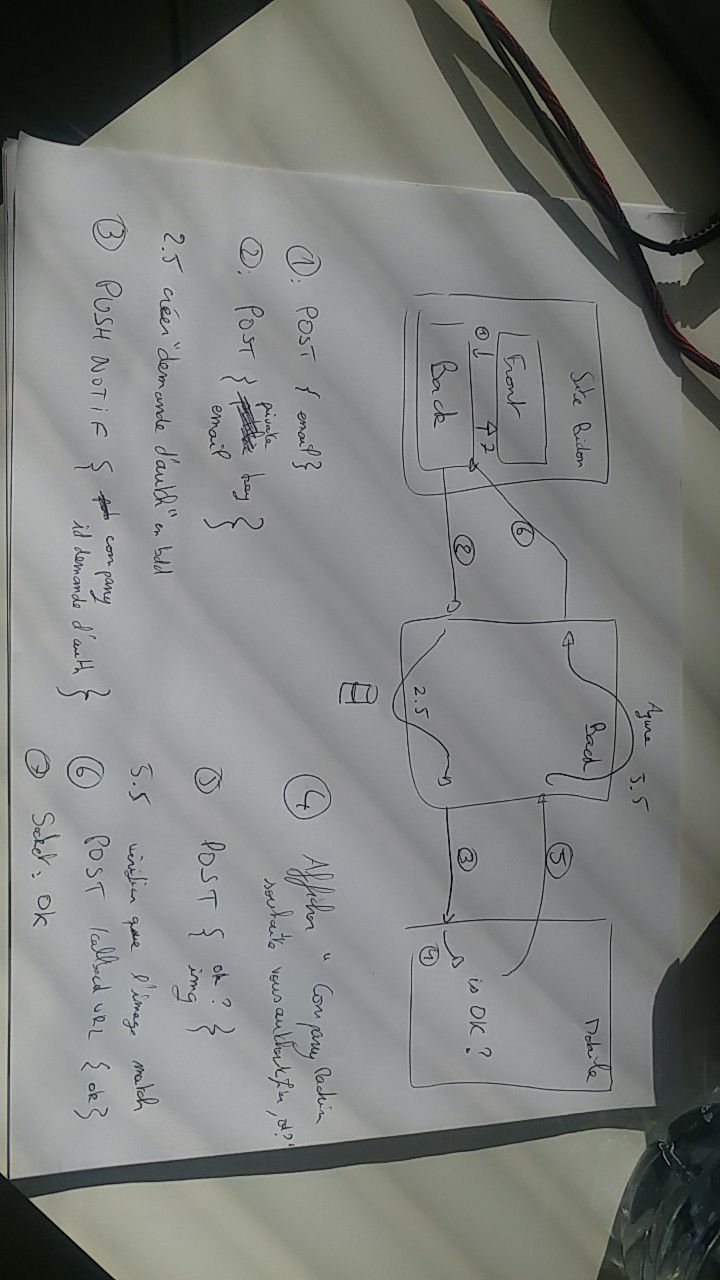 Site Bidon
Front
① 7
Back
⑥
②
Azure
5.5
Back
2.5
⑤
③
Mobile
is OK ?
④
① : POST { email }
② : POST { private key
email }
2.5 créer "demande d'auth" en bdd
③ PUSH NOTIF { company
id demande d'auth }
④ Afficher " Company
souhaite vous authentifier, ok ?"
⑤ POST { ok ?
img }
5.5 vérifier que l'image match
⑥ POST /callback URL { ok }
⑦ Socket : OK